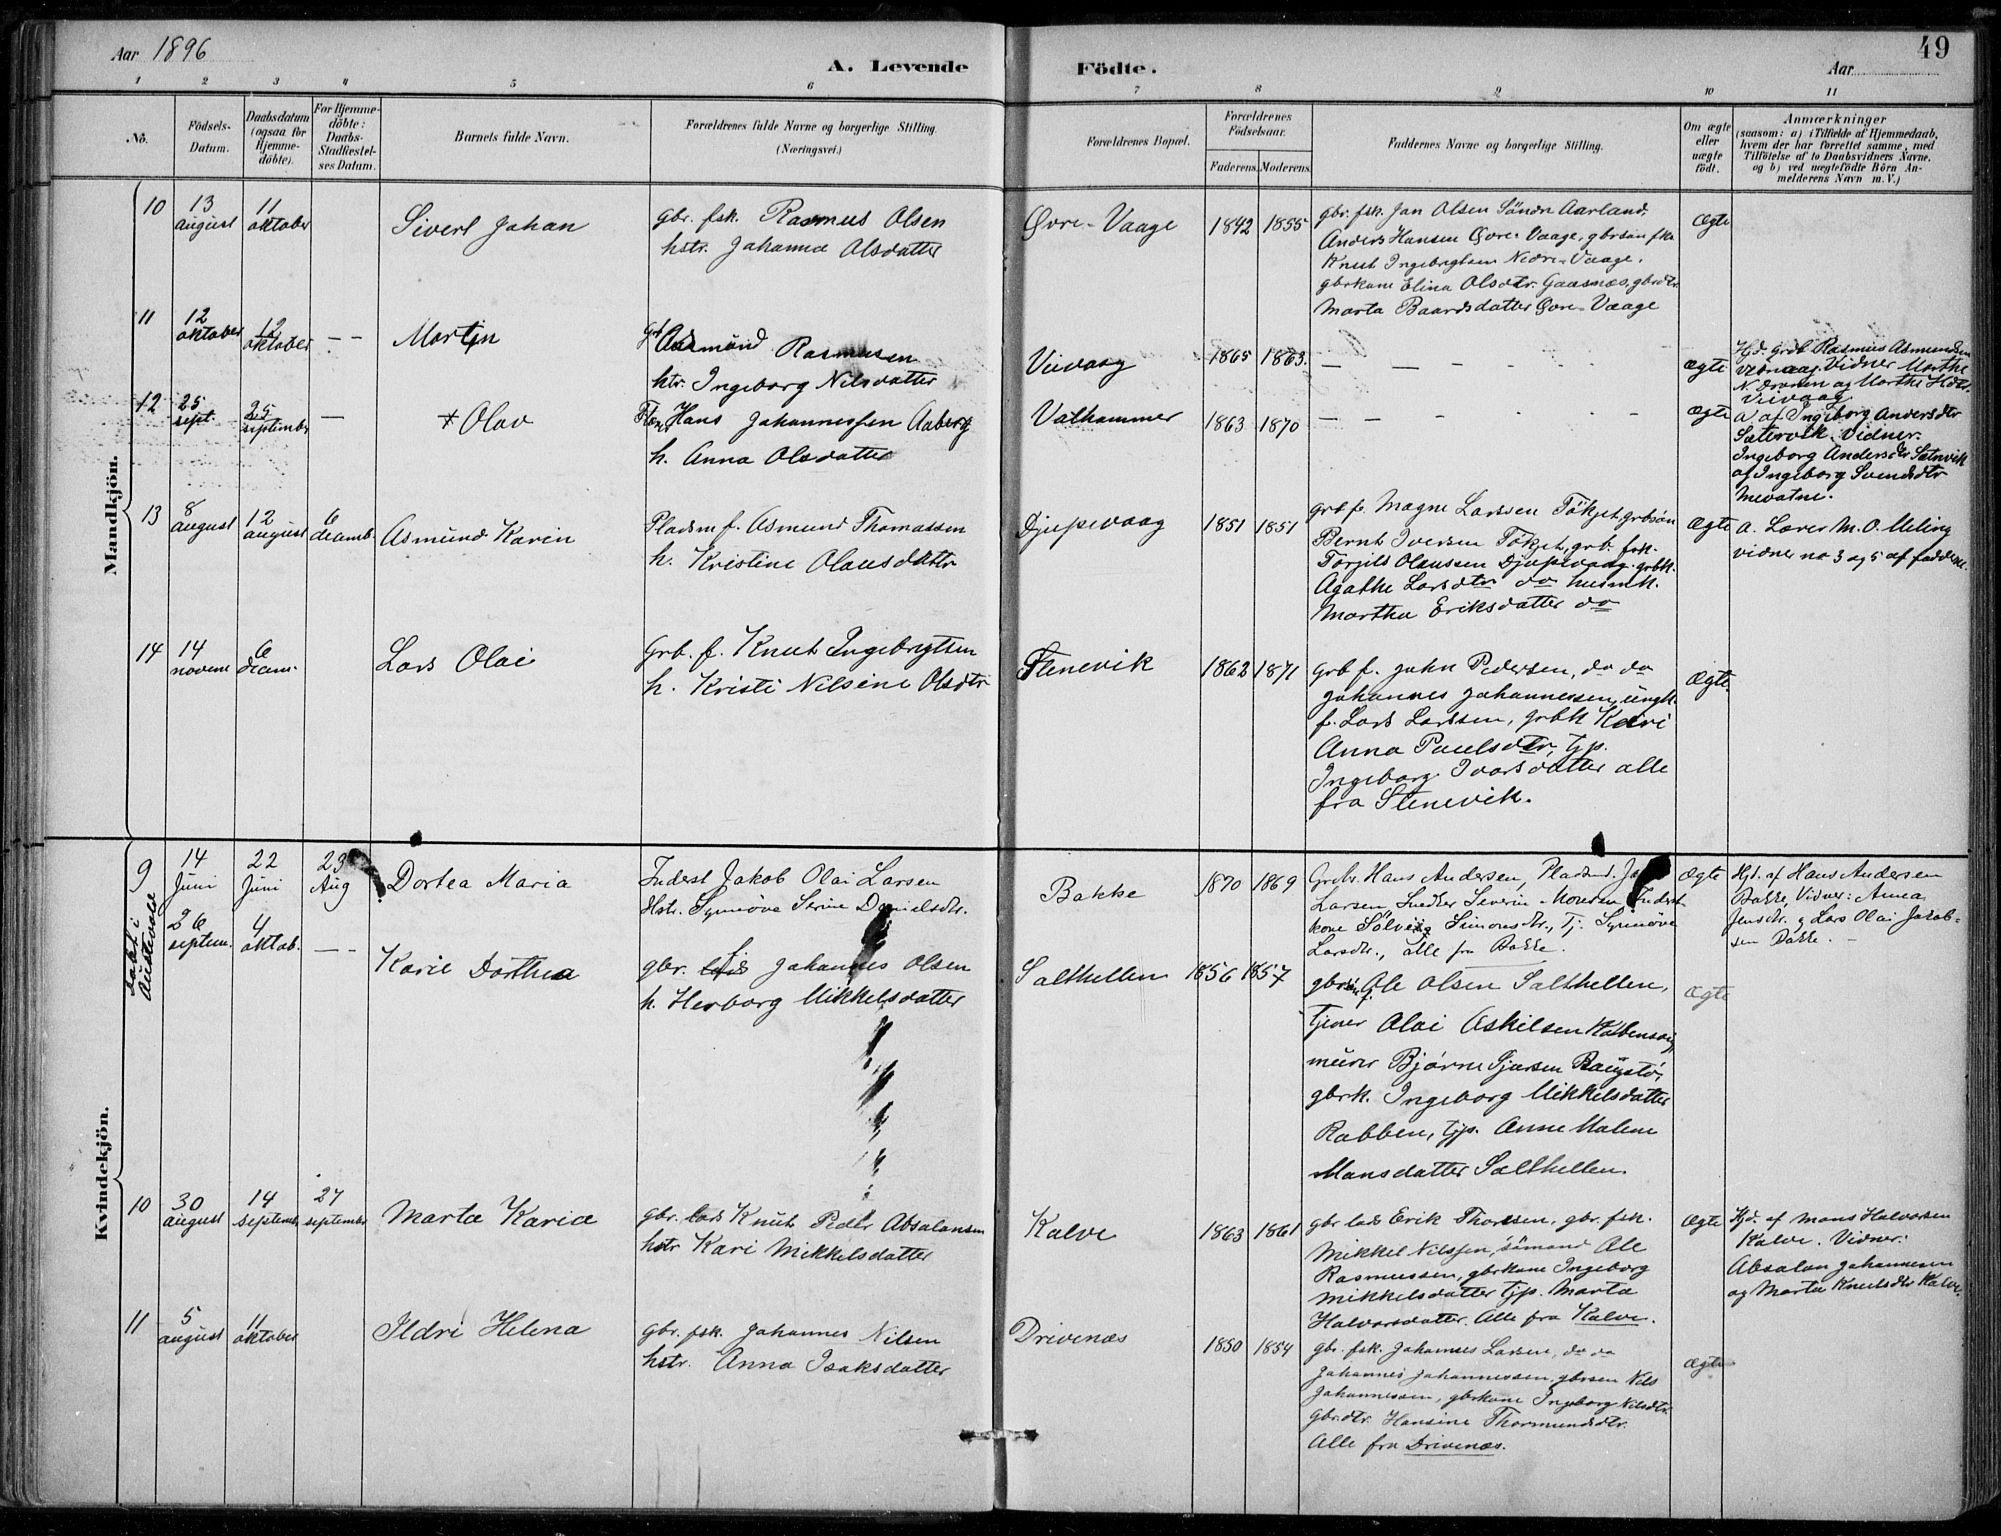 Aar 1896
A. Levende Födte.
Aar
49
1 2 3 4 5 6 7 8 9 10 11
No.
Födsels-
Datum.
Daabsdatum
(ogsaa for
Hjemme-
döbte).
For Hjemme-
döbte:
Daabs-
Stadfæstel-
ses Datum.
Barnets fulde Navn.
Forældrenes fulde Navne og borgerlige Stilling.
(Næringsvei.)
Forældrenes Bopæl.
Forældrenes
Födselsaar.
Faderens. Moderens.
Faddernes Navne og borgerlige Stilling.
Om ægte
eller
uægte
födt.
Anmærkninger
(saasom: a) i Tilfælde af Hjemmedaab,
hvem der har forrettet samme, med
Tilföielse af to Daabsvidners Navne,
og b) ved uægtefödte Börn An-
melderens Navn m. V.)
Mandkjön.
10
13
august
11
oktober
Sivert Johan
gbr. fsk. Rasmus Olsen
hstr. Johanna Olsdatter
Øvre-Vaage
1842
1855
gbr. fsk. Jon Olsen Söndre Aarland,
Anders Hansen Øvre-Vaage, gbrsøn fsk.
Knut Ingebrigtsen Nedre-Vaage,
gbrkone Elina Olsdtr. Gaasnæs, gbrdtr.
Marta Baardsdatter Øvre-Vaage
Ægte
11
12
oktober
12
oktober
— —
Martin
Aasmund Rasmusen
htr. Ingeborg Nilsdatter
Vievaag
1865
1863.
Ægte
Hjd. grdb. Rasmus Asmundsen
Vidner Marthe
og Marthe
Vievaag
12
25
sept.
25
september
—
+ Olav
Hans Johannessen Aaberg
h. Anna Olsdatter
Valhammer
1863
1870
Ægte
a af Ingeborg Andersdtr
Sætervik. Vidner.
Ingeborg Andersdtr Sætervik
og Ingeborg Svendsdtr
Mevatne.
13
8
august
12
august
6
decemb.
Asmund Karin
Pladsm f. Asmund Thomassen
h. Kristine Olausdattr
Djupevaag
1851
1851
grb f. Magne Larssen Tökjet, grbsøn
Bernt Iversen Tökjet, grb. fsk.
Torjils Olaussen Djupevaag, grbk.
Agathe Larsdtr do husmk.
Martha Eriksdatter do
Ægte
a. Lærer M. O. Meling
vidner no 3 og 5 af fadderne.
14
14
novem
6
decem.
Lars Olai
Grb. f. Knut Ingebrigtsen
h. Kristi Nilsine Olsdtr
Stenevik
1862
1871
grb f. John Pedersen, do do
Johannes Johannessen, ungk.
f. Lars Larssen, grbk Kari
Anna Paulsdtr, tjp.
Ingeborg Ivarsdatter alle
fra Stenevik.
Ægte.
Kvindekjön.
9
14
Juni
22
Juni
23
Aug
Dortea Maria
Inderst Jakob Olai Larsen
Hstr. Synnöve Serine Danielsdtr.
Bakke
1870
1869
Grdbr. Hans Andersen, Pladsmd.
Larsen Snedker Severin Monsen Inderst
kone Sölvei Simonsdtr., Tj. Synnöve
Larsdtr., alle fra Bakke.
Ægte
Hjd. af Hans Andersen
Bakke, Vidner: Anna
Jensdtr. og Lars Olai Jakob-
sen Bakke. —
døbt i
Austevold
26
septem.
4
oktob.
— —
Karie Dorthea
gbr. Johannes Olsen
h. Herborg Mikkelsdatter
Salthellen
1856
1857
Ole Olsen Salthellen,
tjener Olai Askilsen
murer Bjørne
gbrk. Ingeborg Mikkelsdatter
Rabben, tjp. Anne Malene
Mansdatter Salthellen.
Ægte
10
30
august
14
septemb.
27
september
Marta Karia
gbr. lods Knut Peder Absalonsen
hstr Kari Mikkelsdatter
Kalve
1863
1861
gbr lods Erik Thorsen, gbr. fsk.
Mikkel Nilssen, sömand Ole
Rasmussen, gbrkone Ingeborg
Mikkelsdatter tjp. Marta
Halvorsdatter. Alle fra Kalve.
Ægte
Hjd. af Mons Halvorsen
Kalve. Vidner:
Absalon Johannesen
og Marta Knutsdtr Kalve.
11
5
august
11
oktober
Ildri Helena
gbr. fsk. Johannes Nilsen
hstr. Anna Isaksdatter
Drivenæs
1850
1854
gbr. fsk. Johannes Larsen, do do
Johannes Johannessen, gbrsøn Nils
Johannessen, gbrkone Ingeborg Nilsdtr.
Gbr.dtr. Hansine Thormundsdtr.
Alle fra Drivenæs.
Ægte